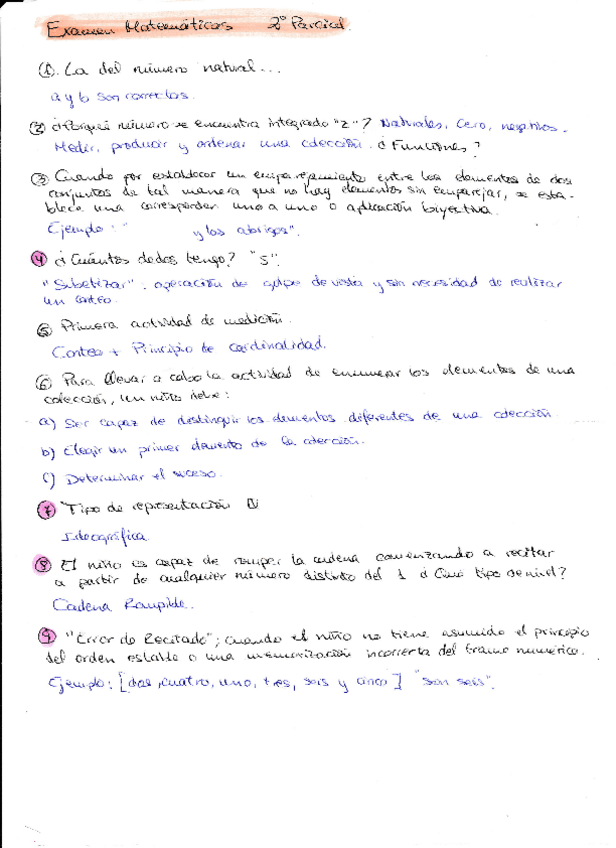 Examen Matemáticas 2º Parcial.
①. La del número natural...
a y b son correctas.
② ¿Porqué número se encuentra integrado "z"? Naturales, Cero, negativos.
Medir, producir y ordenar una colección. ¿Funciones?
③ Cuando por establecer un emparejamiento entre los elementos de dos
conjuntos de tal manera que no hay elementos sin emparejar, se esta-
blece una corresponden uno a uno o aplicación biyectiva.
Ejemplo: " y los abrigos".
④ ¿Cuántos dedos tengo? "5".
"Subitizar": operación de golpe de vista y sin necesidad de realizar
un conteo.
⑤ Primera actividad de medición.
Conteo + Principio de cardinalidad.
⑥ Para llevar a cabo la actividad de enumerar los elementos de una
colección, un niño debe:
a) Ser capaz de distinguir los elementos diferentes de una colección.
b) Elegir un primer elemento de la colección.
c) Determinar el suceso.
⑦ Tipo de representación
Ideográfica.
⑧ El niño es capaz de romper la cadena comenzando a recitar
a partir de cualquier número distinto del 1 ¿Qué tipo de nivel?
Cadena Rompible.
⑨ "Error de Recitado"; cuando el niño no tiene asumido el principio
del orden estable o una memorización incorrecta del tramo numérico.
Ejemplo: [dos, cuatro, uno, tres, seis y cinco] "son seis".